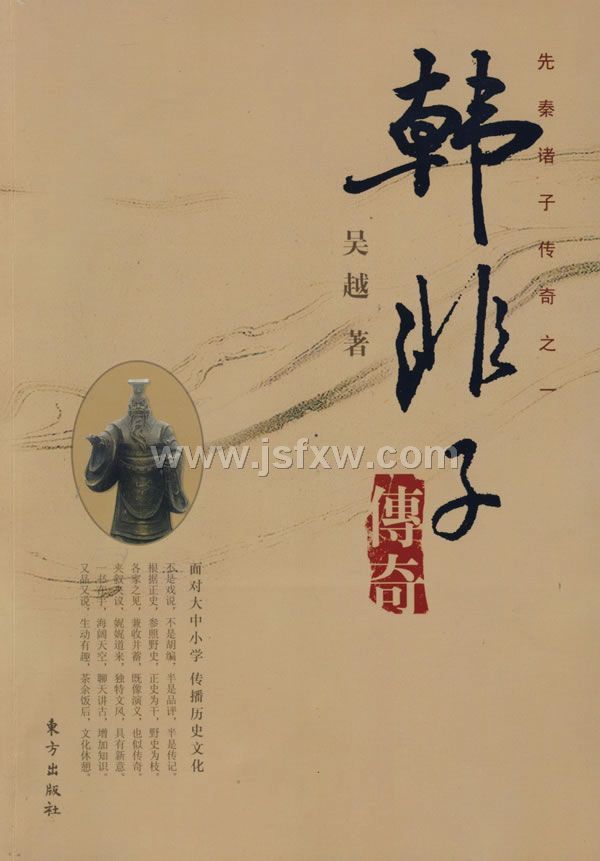 先秦诸子传奇之一
韩非子
傳奇
吴越 著
www.jsfxw.com
面对大中小学 传播历史文化
不是戏说,不是胡编,半是品评,半是传记。
根据正史,参照野史,正史为干,野史为枝。
各家之见,兼收并蓄,既像演义,也似传奇。
夹叙夹议,娓娓道来,独特文风,具有新意。
一书在手,海阔天空,聊天讲古,增加知识。
又品又说,生动有趣,茶余饭后,文化休憩。
東方出版社